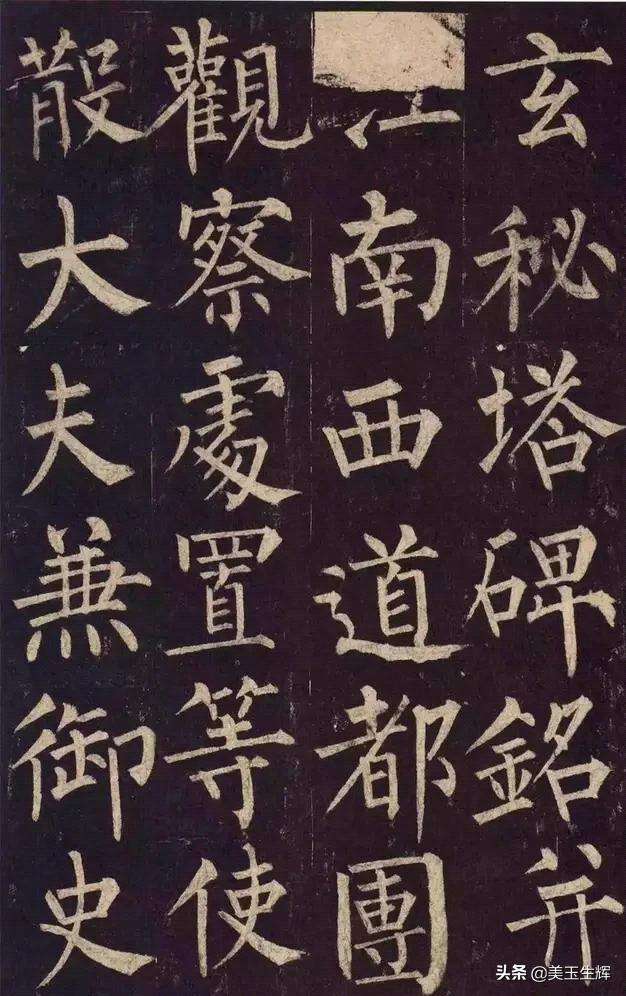 玄秘塔碑銘并
江南西道都團
觀察處置等使
散大夫兼御史
头条 @美玉生辉